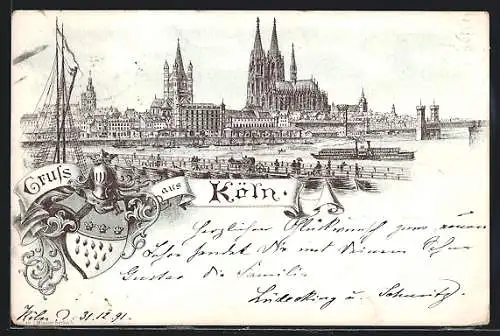 Gruss
aus
Köln.
Herzlichen Glückwunsch zum neuen
Jahre sendet Dir mit Deinem
Gustav die Familie
u.
31.12.91.